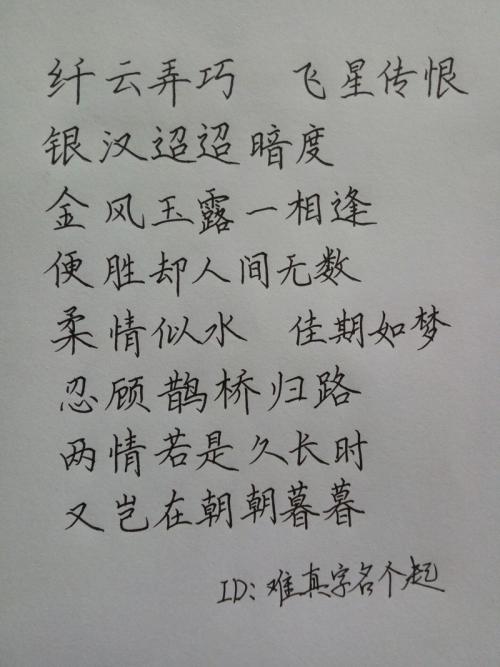 纤云弄巧 飞星传恨
银汉迢迢暗度
金风玉露一相逢
便胜却人间无数
柔情似水 佳期如梦
忍顾鹊桥归路
两情若是久长时
又岂在朝朝暮暮
ID:难真字名个起